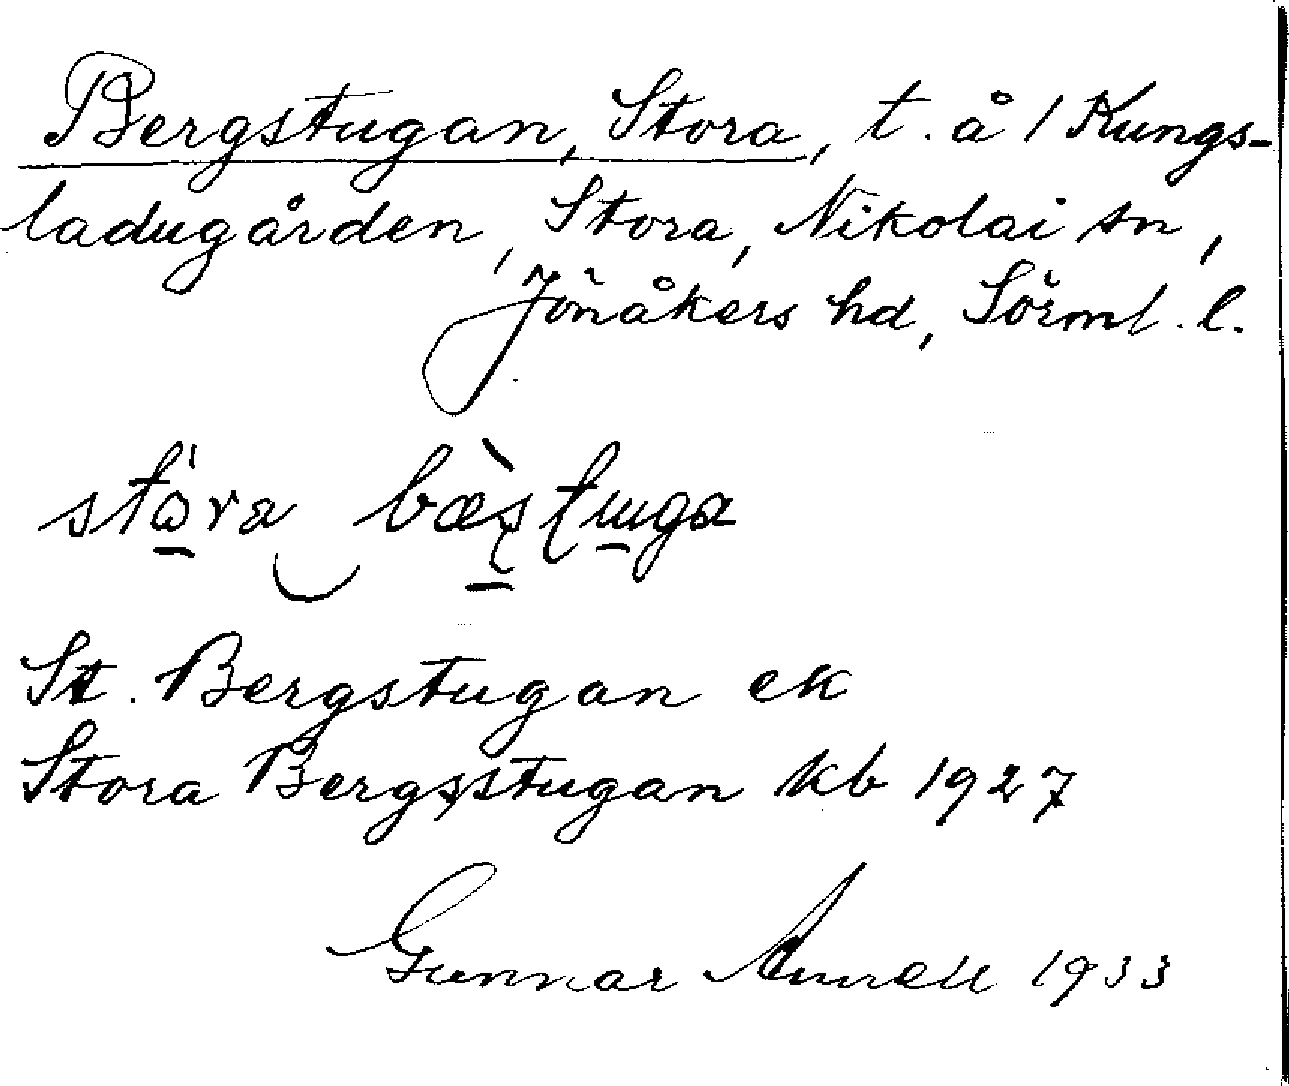 Bergstugan, Stora, t. å 1 Kungs-
ladugården, Stora, Nikolai sn,
Jönåkers hd, Sörml. l.
St. Bergstugan ek
Stora Bergsstugan kb 1927
Gunnar Annell 1933